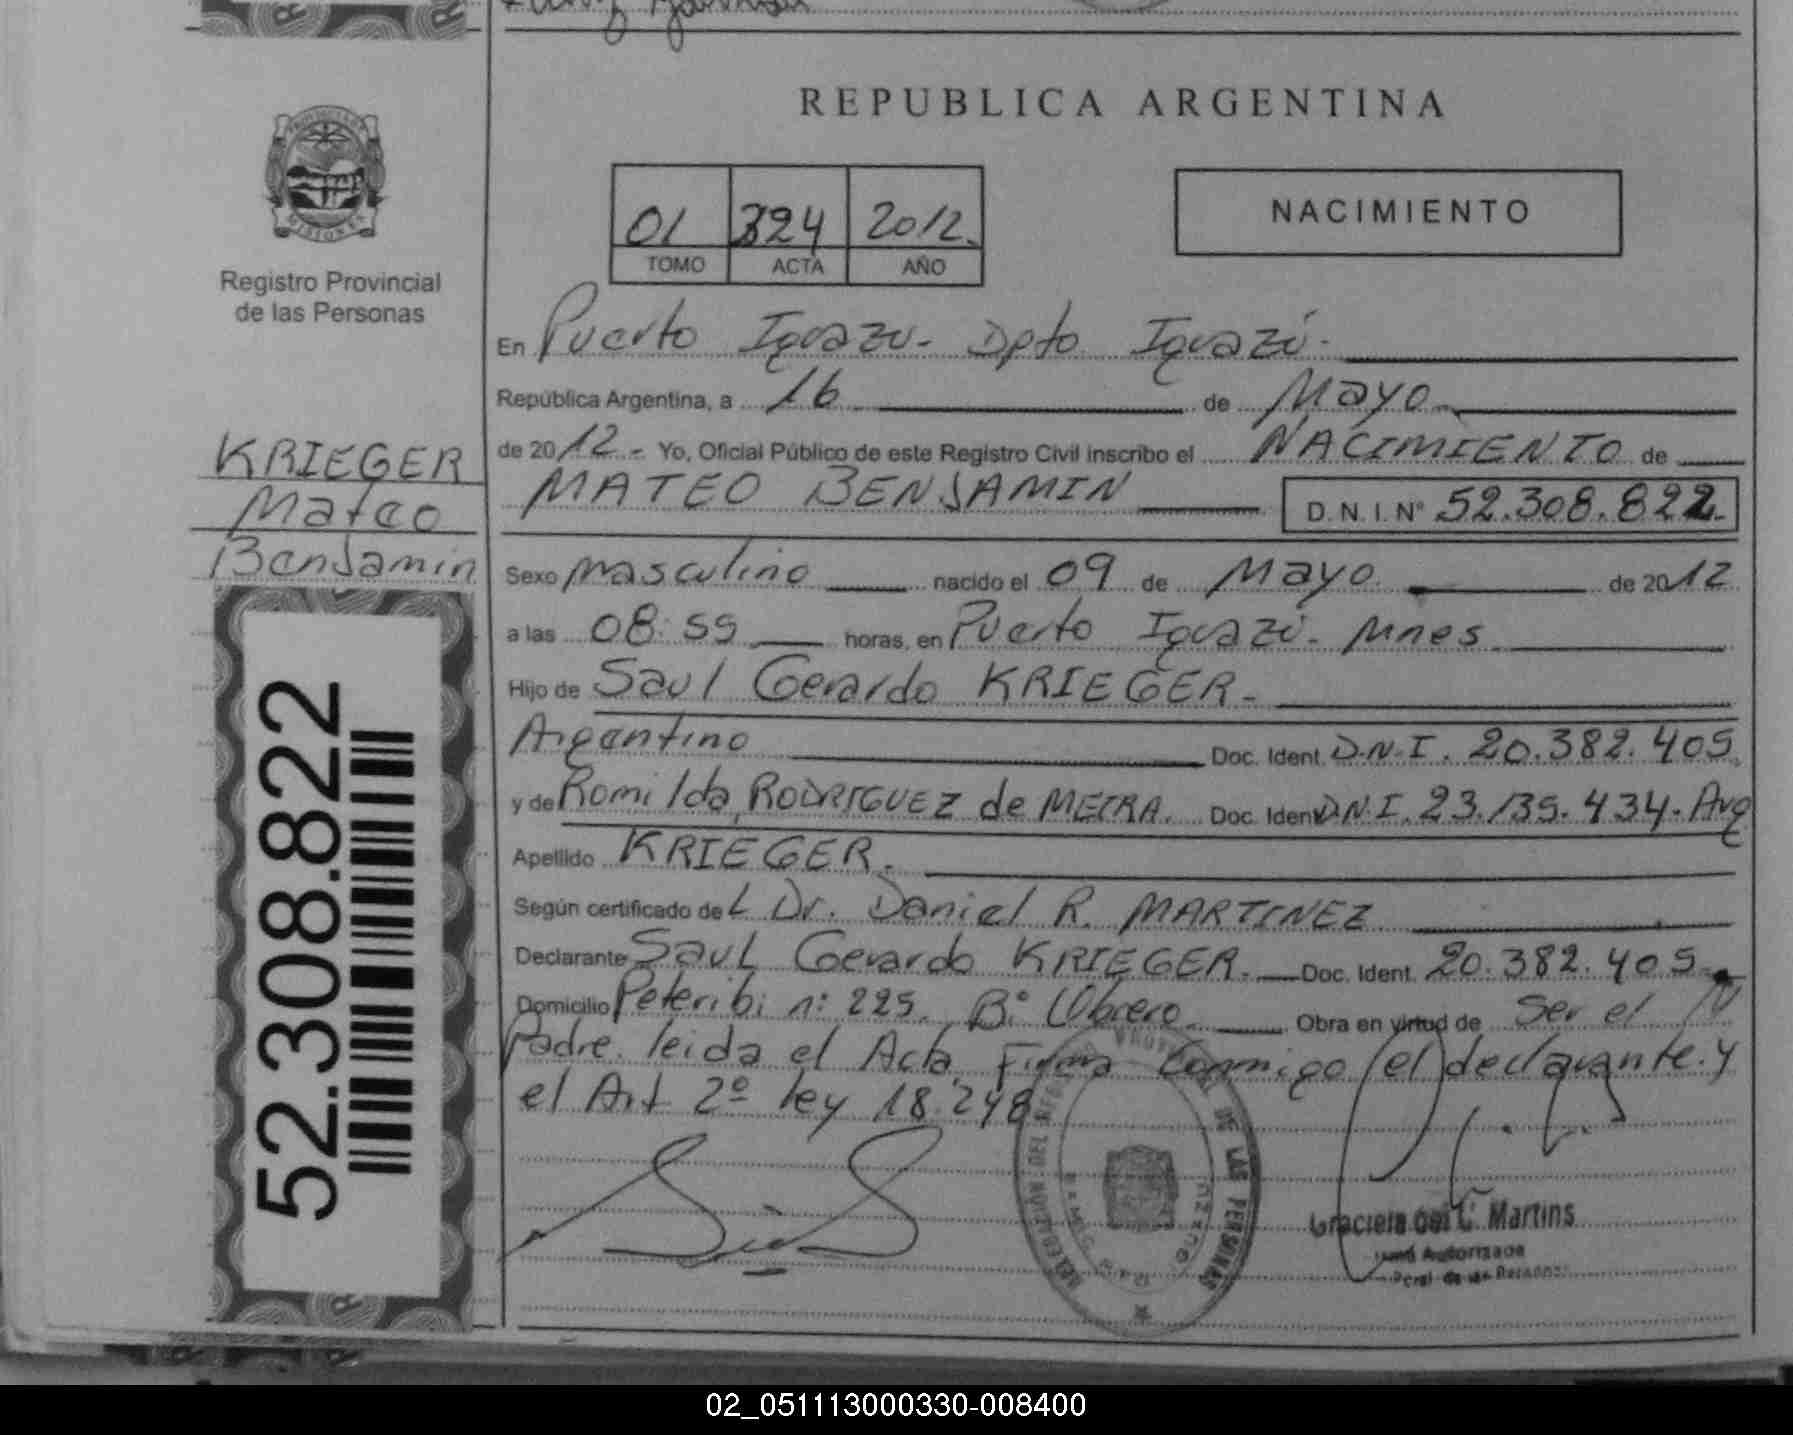 REPUBLICA ARGENTINA
PROVINCIA DE MISIONES
Registro Provincial
de las Personas
01 324 2012.
TOMO ACTA AÑO
NACIMIENTO
En Puerto Iguazu- Dpto Iguazú-
República Argentina, a 16 de Mayo
de 2012- Yo, Oficial Público de este Registro Civil inscribo el NACIMIENTO de
MATEO BENJAMIN D.N.I.N° 52.308.822.
KRIEGER
Mateo
Benjamin
52.308.822
Sexo masculino nacido el 09 de Mayo de 2012
a las 08:55 horas, en Puerto Iguazú- Mnes
Hijo de Saul Gerardo KRIEGER-
Argentino Doc. Ident. D.N.I. 20.382.405
y de Romilda RODRIGUEZ de MEIRA. Doc. Ident D.N.I. 23.135.434- Arg
Apellido KRIEGER.
Según certificado del Dr. Daniel R. MARTINEZ
Declarante SauL Gerardo KRIEGER. Doc. Ident. 20.382.405
Domicilio Peteribi n: 225. B° Obrero Obra en virtud de Ser el
Padre. leida el Acta Firma Conmigo el declarante. y
el Art 2º ley 18.248
DE LAS PERSONAS
Graciela del C. Martins
Autorizada
02_051113000330-008400